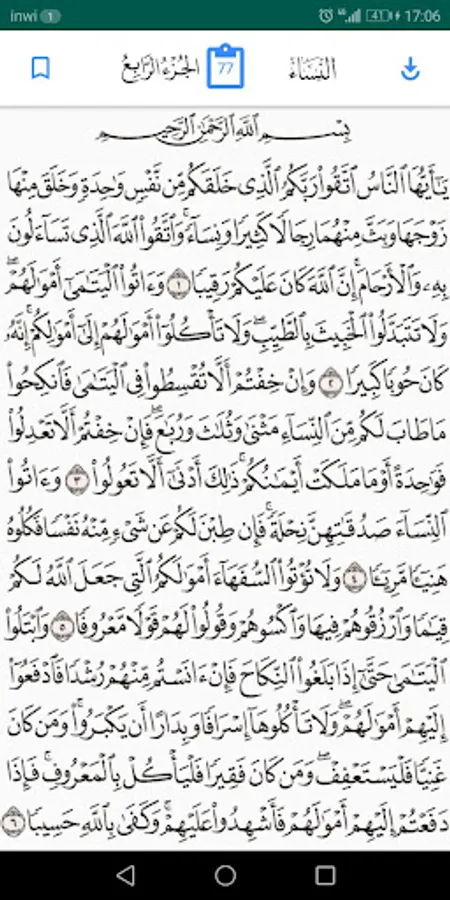 inwi 1 4G 41 17:06
النِّسَاءُ 77 الجُزْءُ الرَّابِعُ
بِسْمِ ٱللَّهِ ٱلرَّحْمَٰنِ ٱلرَّحِيمِ
يَٰٓأَيُّهَا ٱلنَّاسُ ٱتَّقُوا۟ رَبَّكُمُ ٱلَّذِى خَلَقَكُم مِّن نَّفْسٍ وَٰحِدَةٍ وَخَلَقَ مِنْهَا
زَوْجَهَا وَبَثَّ مِنْهُمَا رِجَالًا كَثِيرًا وَنِسَآءً ۚ وَٱتَّقُوا۟ ٱللَّهَ ٱلَّذِى تَسَآءَلُونَ
بِهِۦ وَٱلْأَرْحَامَ ۚ إِنَّ ٱللَّهَ كَانَ عَلَيْكُمْ رَقِيبًا ١ وَءَاتُوا۟ ٱلْيَتَٰمَىٰٓ أَمْوَٰلَهُمْ ۖ
وَلَا تَتَبَدَّلُوا۟ ٱلْخَبِيثَ بِٱلطَّيِّبِ ۖ وَلَا تَأْكُلُوٓا۟ أَمْوَٰلَهُمْ إِلَىٰٓ أَمْوَٰلِكُمْ ۚ إِنَّهُۥ
كَانَ حُوبًا كَبِيرًا ٢ وَإِنْ خِفْتُمْ أَلَّا تُقْسِطُوا۟ فِى ٱلْيَتَٰمَىٰ فَٱنكِحُوا۟
مَا طَابَ لَكُم مِّنَ ٱلنِّسَآءِ مَثْنَىٰ وَثُلَٰثَ وَرُبَٰعَ ۖ فَإِنْ خِفْتُمْ أَلَّا تَعْدِلُوا۟
فَوَٰحِدَةً أَوْ مَا مَلَكَتْ أَيْمَٰنُكُمْ ۚ ذَٰلِكَ أَدْنَىٰٓ أَلَّا تَعُولُوا۟ ٣ وَءَاتُوا۟
ٱلنِّسَآءَ صَدُقَٰتِهِنَّ نِحْلَةً ۚ فَإِن طِبْنَ لَكُمْ عَن شَىْءٍ مِّنْهُ نَفْسًا فَكُلُوهُ
هَنِيٓـًٔا مَّرِيٓـًٔا ٤ وَلَا تُؤْتُوا۟ ٱلسُّفَهَآءَ أَمْوَٰلَكُمُ ٱلَّتِى جَعَلَ ٱللَّهُ لَكُمْ
قِيَٰمًا وَٱرْزُقُوهُمْ فِيهَا وَٱكْسُوهُمْ وَقُولُوا۟ لَهُمْ قَوْلًا مَّعْرُوفًا ٥ وَٱبْتَلُوا۟
ٱلْيَتَٰمَىٰ حَتَّىٰٓ إِذَا بَلَغُوا۟ ٱلنِّكَاحَ فَإِنْ ءَانَسْتُم مِّنْهُمْ رُشْدًا فَٱدْفَعُوٓا۟
إِلَيْهِمْ أَمْوَٰلَهُمْ ۖ وَلَا تَأْكُلُوهَآ إِسْرَافًا وَبِدَارًا أَن يَكْبَرُوا۟ ۚ وَمَن كَانَ
غَنِيًّا فَلْيَسْتَعْفِفْ ۖ وَمَن كَانَ فَقِيرًا فَلْيَأْكُلْ بِٱلْمَعْرُوفِ ۚ فَإِذَا
دَفَعْتُمْ إِلَيْهِمْ أَمْوَٰلَهُمْ فَأَشْهِدُوا۟ عَلَيْهِمْ ۚ وَكَفَىٰ بِٱللَّهِ حَسِيبًا ٦